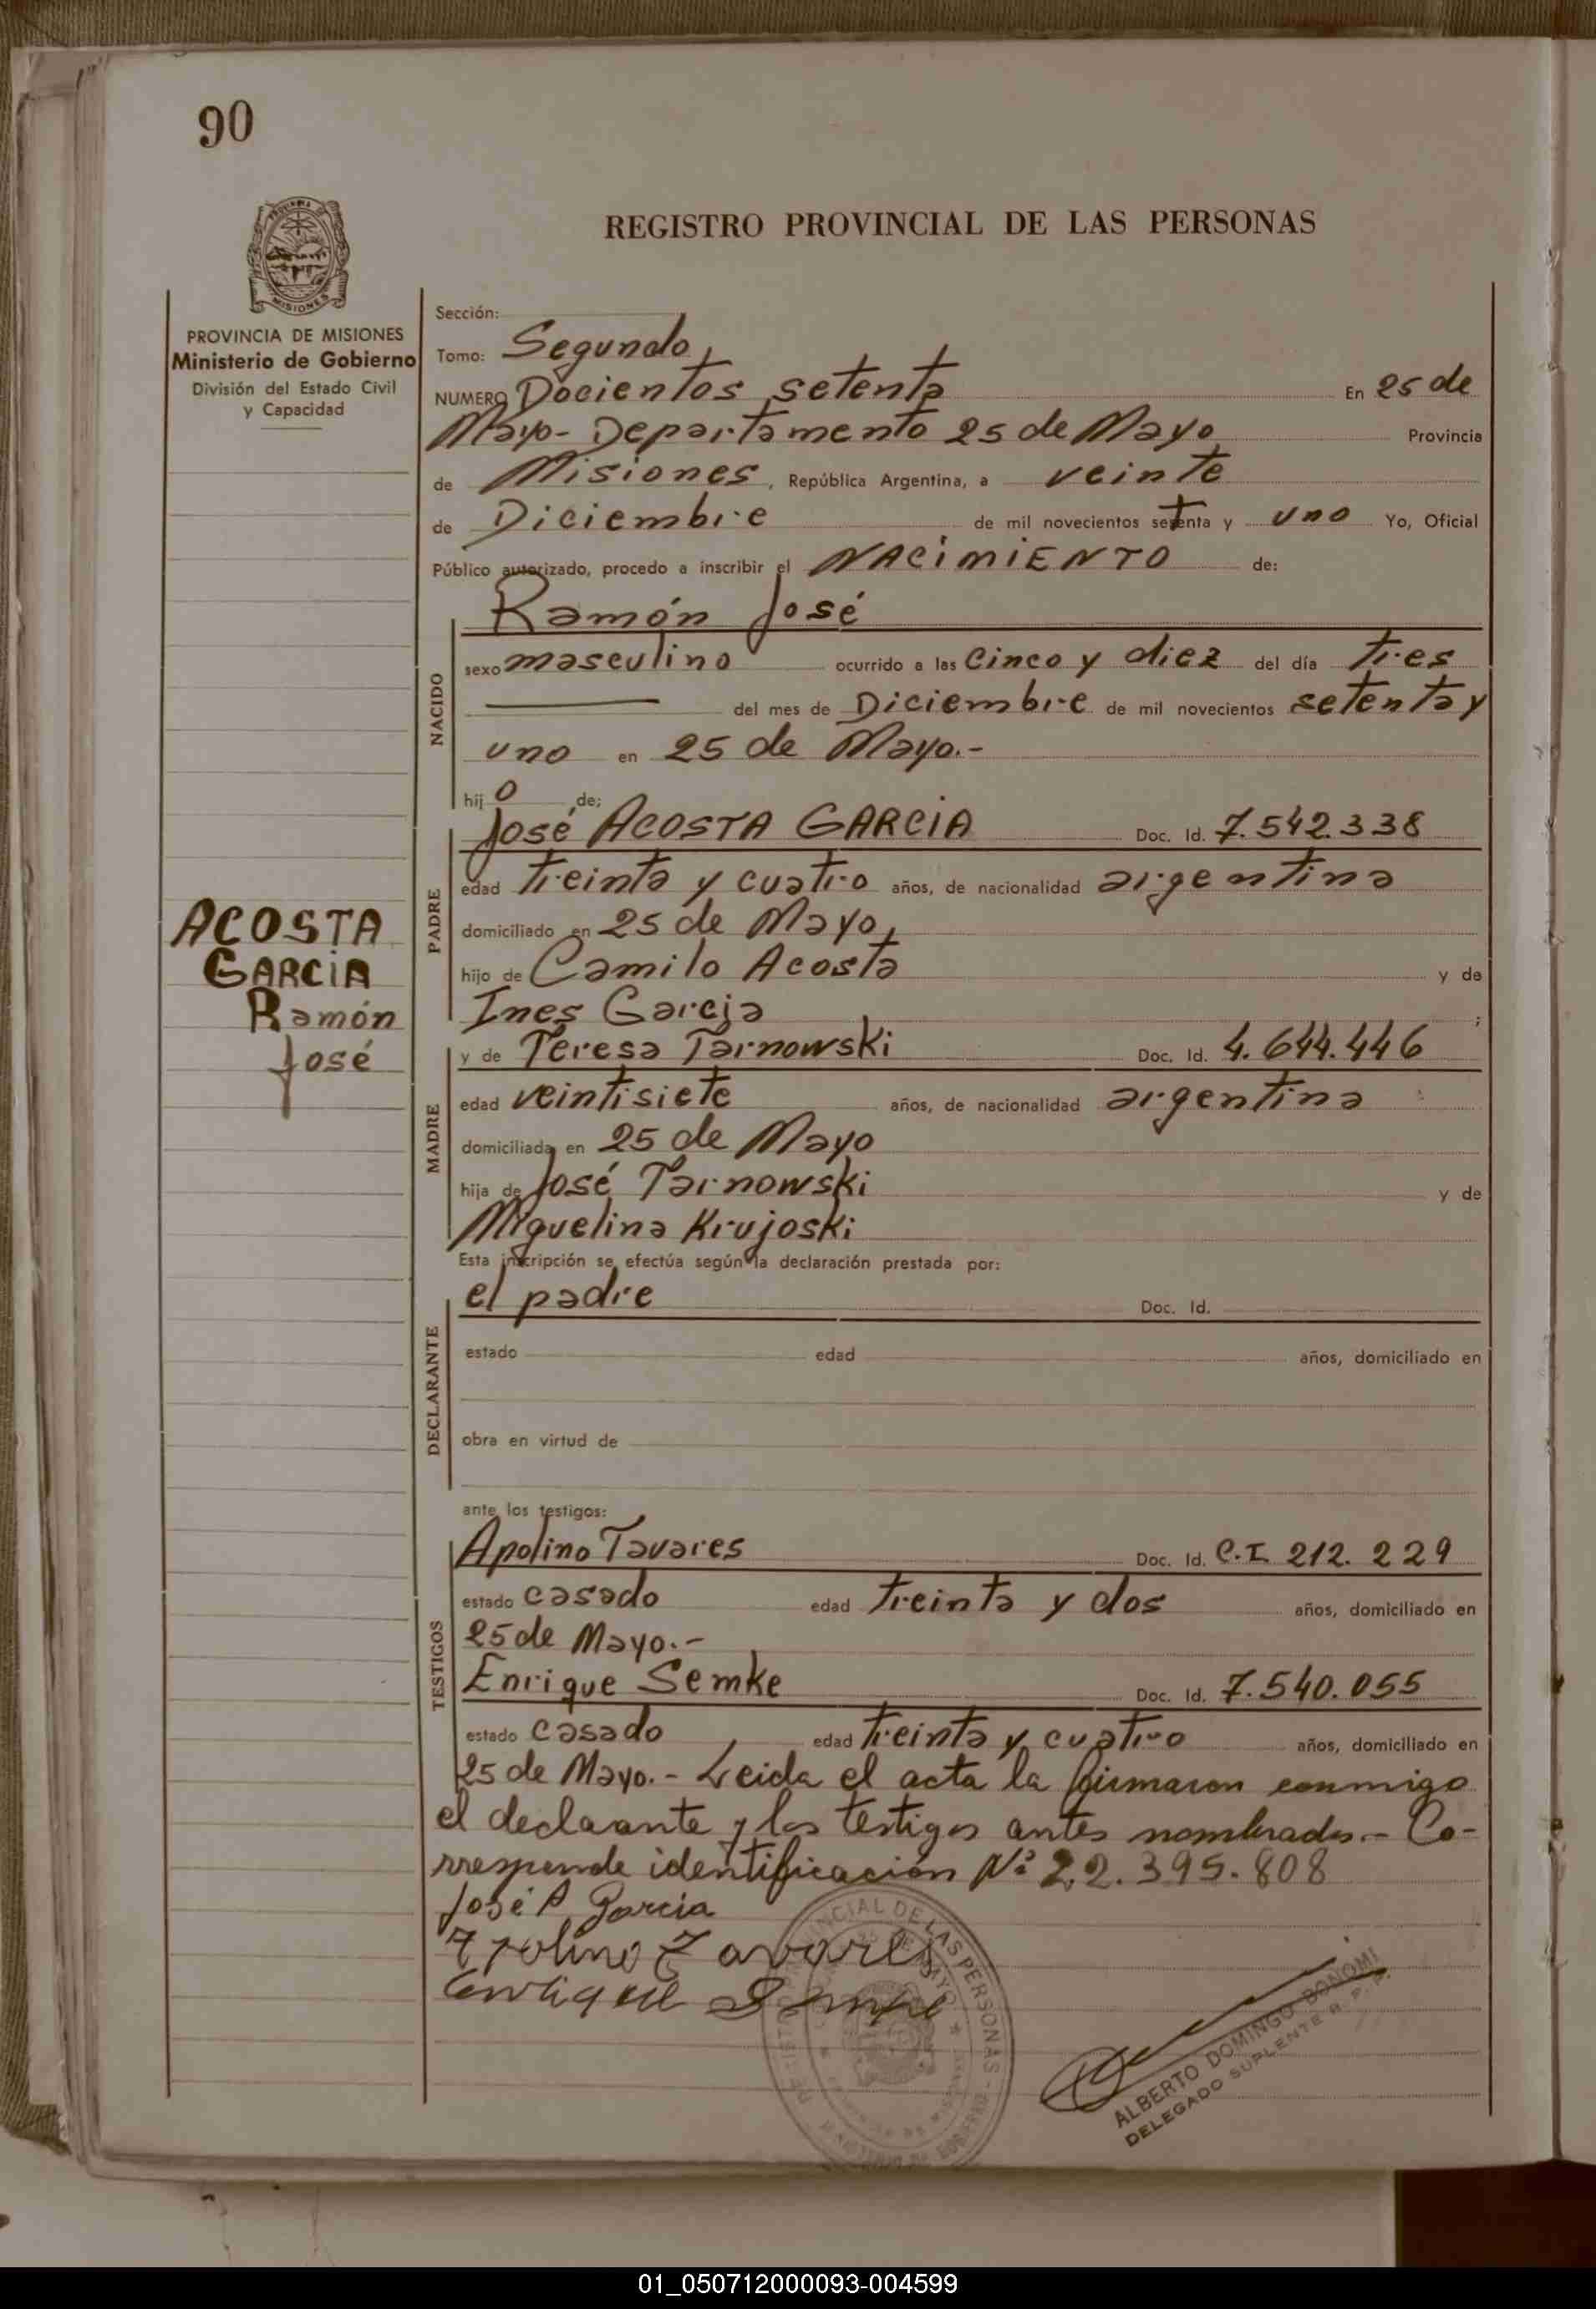 90
REGISTRO PROVINCIAL DE LAS PERSONAS
MISIONES
PROVINCIA DE MISIONES
Ministerio de Gobierno
División del Estado Civil
y Capacidad
Sección:
Tomo: Segundo
NUMERO Docientos setenta En 25 de
Mayo - Departamento 25 de Mayo Provincia
de Misiones, República Argentina, a veinte
de Diciembre de mil novecientos setenta y uno Yo, Oficial
Público autorizado, procedo a inscribir el NACIMIENTO de:
Ramón José
NACIDO
sexo masculino ocurrido a las cinco y diez del día tres
del mes de Diciembre de mil novecientos setenta y
uno en 25 de Mayo.-
hijo de;
José ACOSTA GARCIA Doc. Id. 7.542.338
PADRE
edad treinta y cuatro años, de nacionalidad argentina
domiciliado en 25 de Mayo,
hijo de Camilo Acosta y de
Ines Garcia ;
ACOSTA
GARCIA
Ramón
José
y de Teresa Tarnowski Doc. Id. 4.644.446
MADRE
edad veintisiete años, de nacionalidad argentina
domiciliada en 25 de Mayo
hija de José Tarnowski y de
Miguelina Krujoski
Esta inscripción se efectúa según la declaración prestada por:
el padre Doc. Id.
DECLARANTE
estado edad años, domiciliado en
obra en virtud de
ante los testigos:
Apolino Tavares Doc. Id. C.I. 212.229
TESTIGOS
estado casado edad treinta y dos años, domiciliado en
25 de Mayo.-
Enrique Semke Doc. Id. 7.540.055
estado casado edad treinta y cuatro años, domiciliado en
25 de Mayo.- Leida el acta la firmaron conmigo
el declarante y los testigos antes nombrados.- Co-
rresponde identificación Nº 22.395.808
José A Garcia
Apolino Tavares
Enrique
PROVINCIAL DE LAS PERSONAS
ALBERTO DOMINGO BONOMI
DELEGADO SUPLENTE R. P. P.
01_050712000093-004599